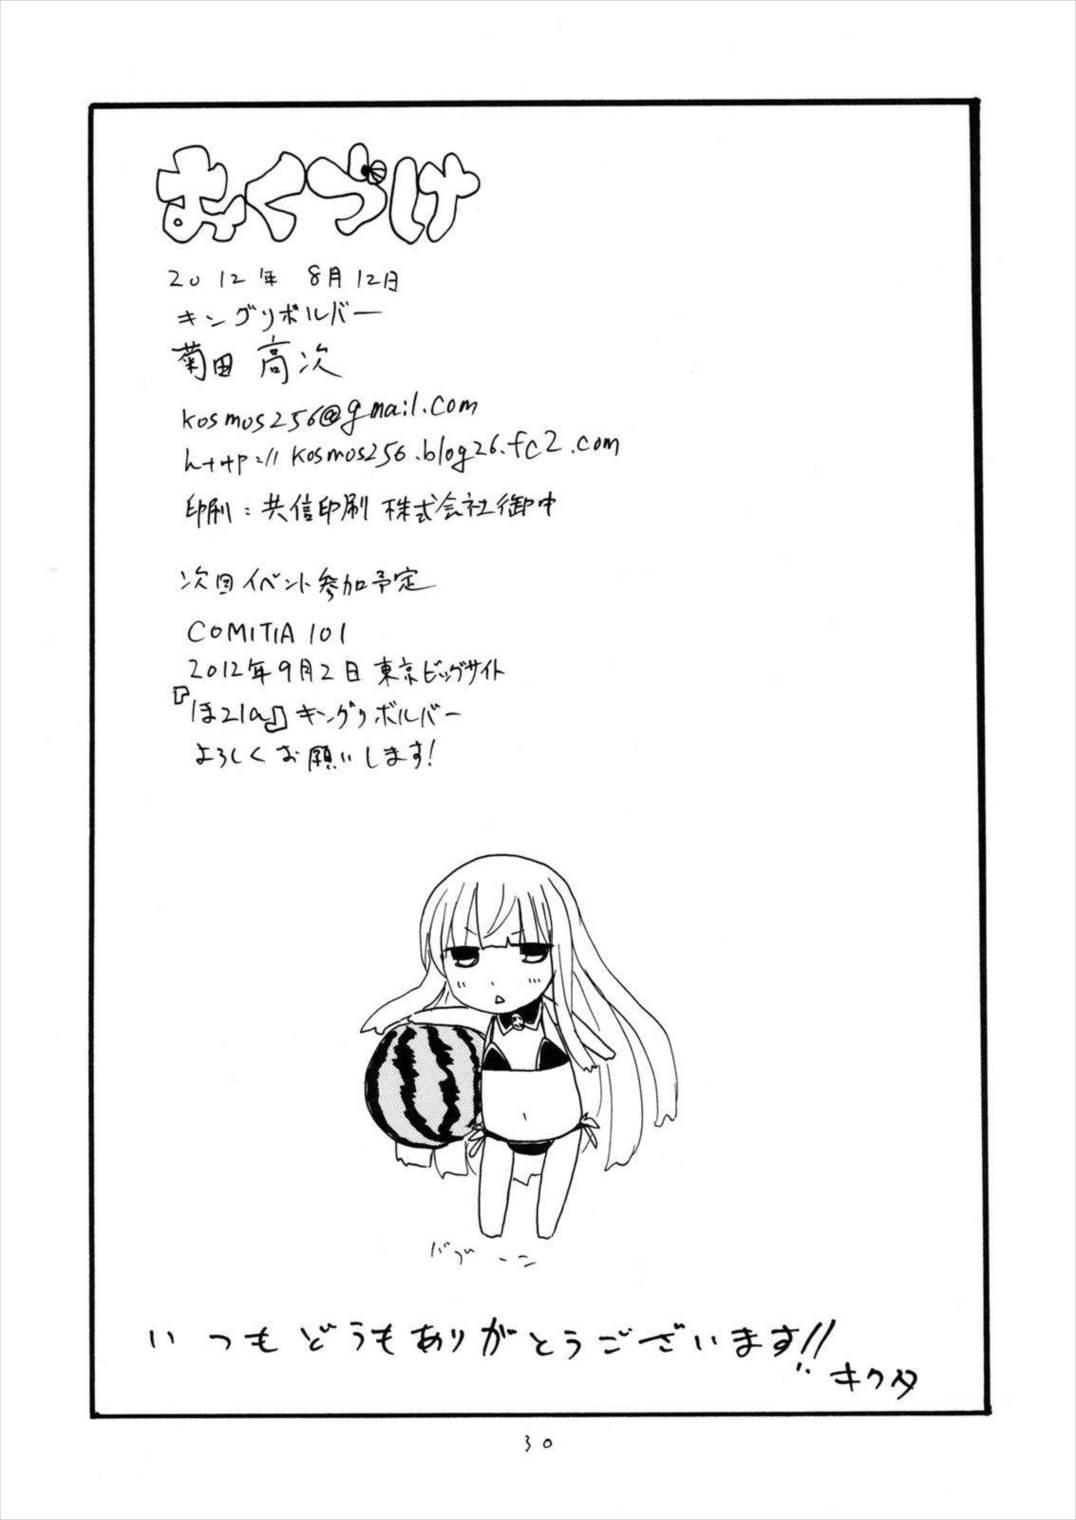 おくづけ
2012年 8月12日
キングリボルバー
菊田 高次
kosmos256@gmail.com
http://kosmos256.blog26.fc2.com
印刷：共信印刷 株式会社御中
次回イベント参加予定
COMITIA 101
2012年9月2日 東京ビッグサイト
『ほ21a』キングリボルバー
よろしくお願いします!
いつもどうもありがとうございます!!
キクタ
30